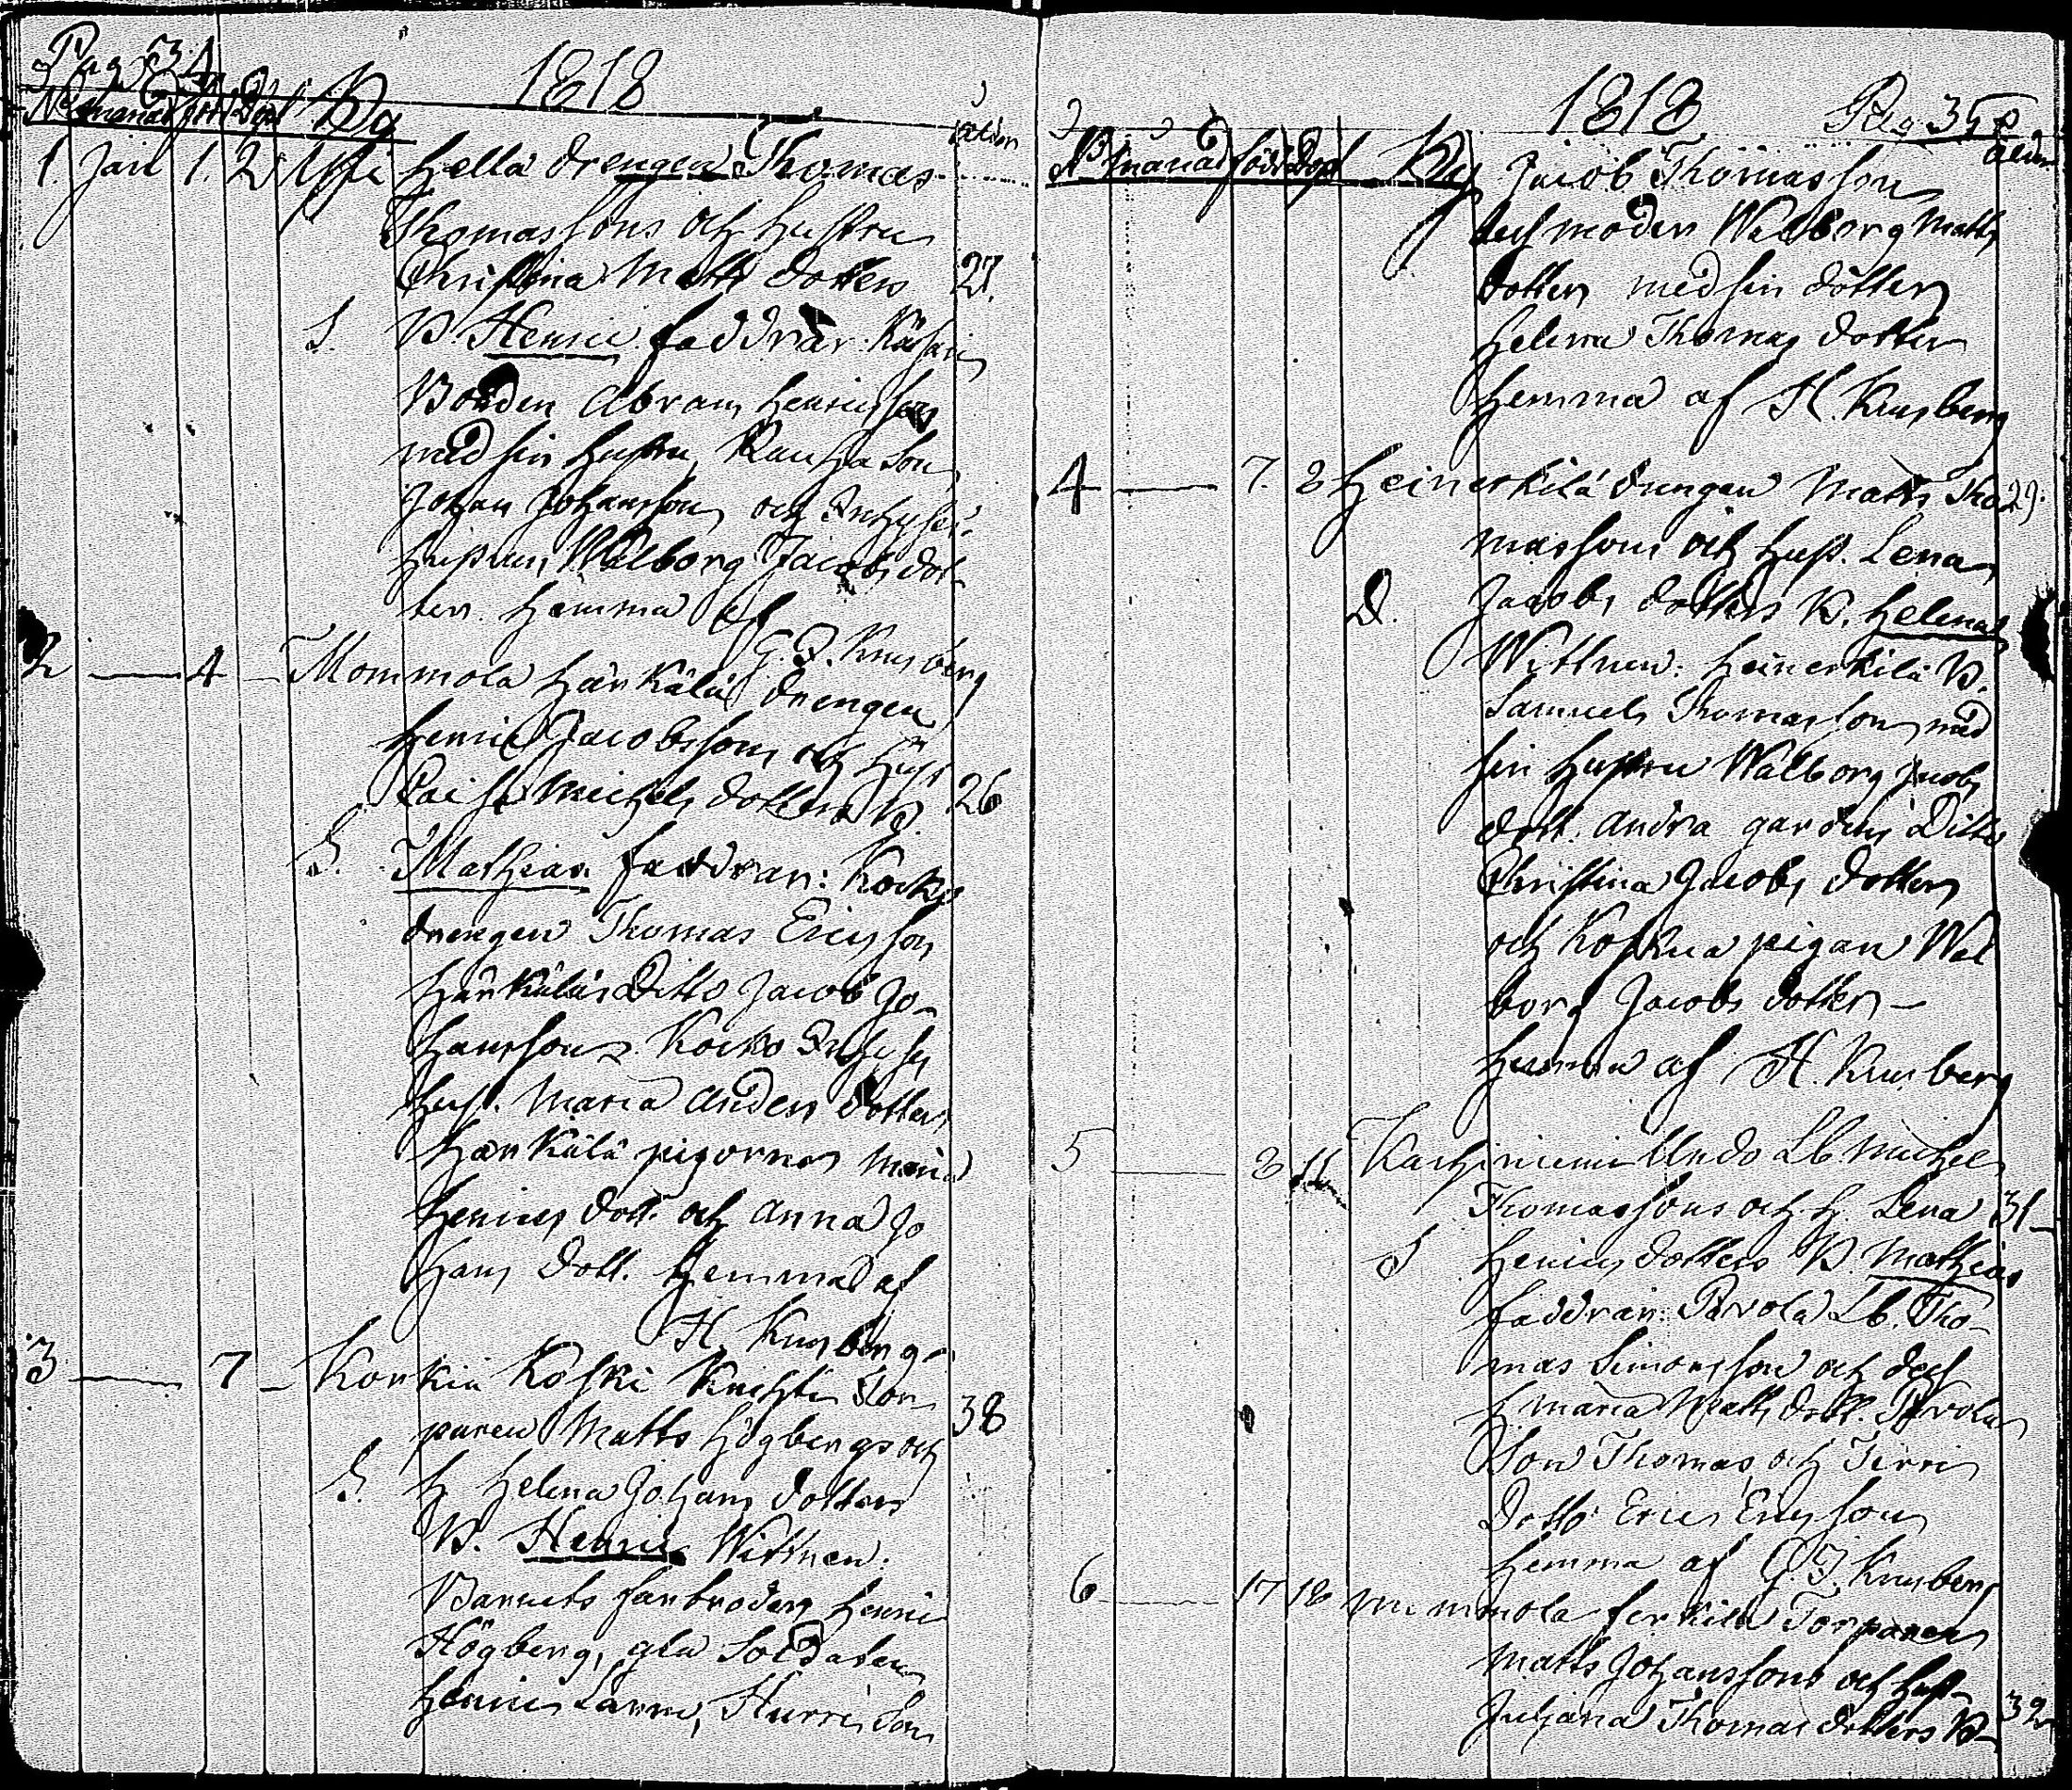 Pag 34
1818
No månad född Döpt By
ålder
1. Jan 1. 2 Uffi Hella drengen Thomas
Thomassons och hustru
Christina Matts dotters 27.
S. B. Henric faddrar:
Bonden Abram Henricsson
med sin hustru, son
Johan Johansson och Inhyses
hustrun Walborg Jacobs dot-
ter. hemma af
G. J. Krusberg
2 4 Mommola Härkälä drengen
Henric Jacobssons och Hust
Caisa Michels dotters B. 26
S. Mathias faddrar: Kocko
drengen Thomas Ericsson
Härkälä Ditto Jacob Jo-
hansson Kocko Inhyses
Hust. Maria Anders dotter
Härkälä pigorna Maria
Henrics dott. och Anna Jo
hans dott. hemma af
H. Krusberg
3 7 Konkin Koski Tor
paren Matts Högbergs och 38
S. H Helena Johans dotters
B. Henric Wittnen:
Barnets farbroder Henric
Högberg, gla Soldaten
Henric Son
1818. Pag 35
No månad född Döpt By
ålder
Jacob Thomasson
moder Walborg Matts
dotter med sin dotter
Helena Thomas dotter
hemma af H. Krusberg
4 7. 8 Heinerkilä drengen Matts Tho 29.
massons och hust. Lena
D. Jacobs dotters B. Helena
Wittnen: heinerkilä B.
Samuel Thomasson med
sin hustru Walborg Jacobs
dott. andra gårdens Ditto
Christina Jacobs dotter
och Koskua pigan Wal
borg Jacobs dotter
hemma af H. Krusberg
5 8 11 Karhiniemi Undo Lb Michel
Thomassons och h. Lena 31
S Henrics dotters B. Mathias
faddrar: Pavola Lb. Tho-
mas Simonsson och dess
h Maria Matts dott. Pavola
Son Thomas och
Ditto Eric Ericsson
hemma af G. J. Krusberg
6 17 18 Mommola Torparen
Matts Johanssons och hust
Juliana Thomas dotters B 32